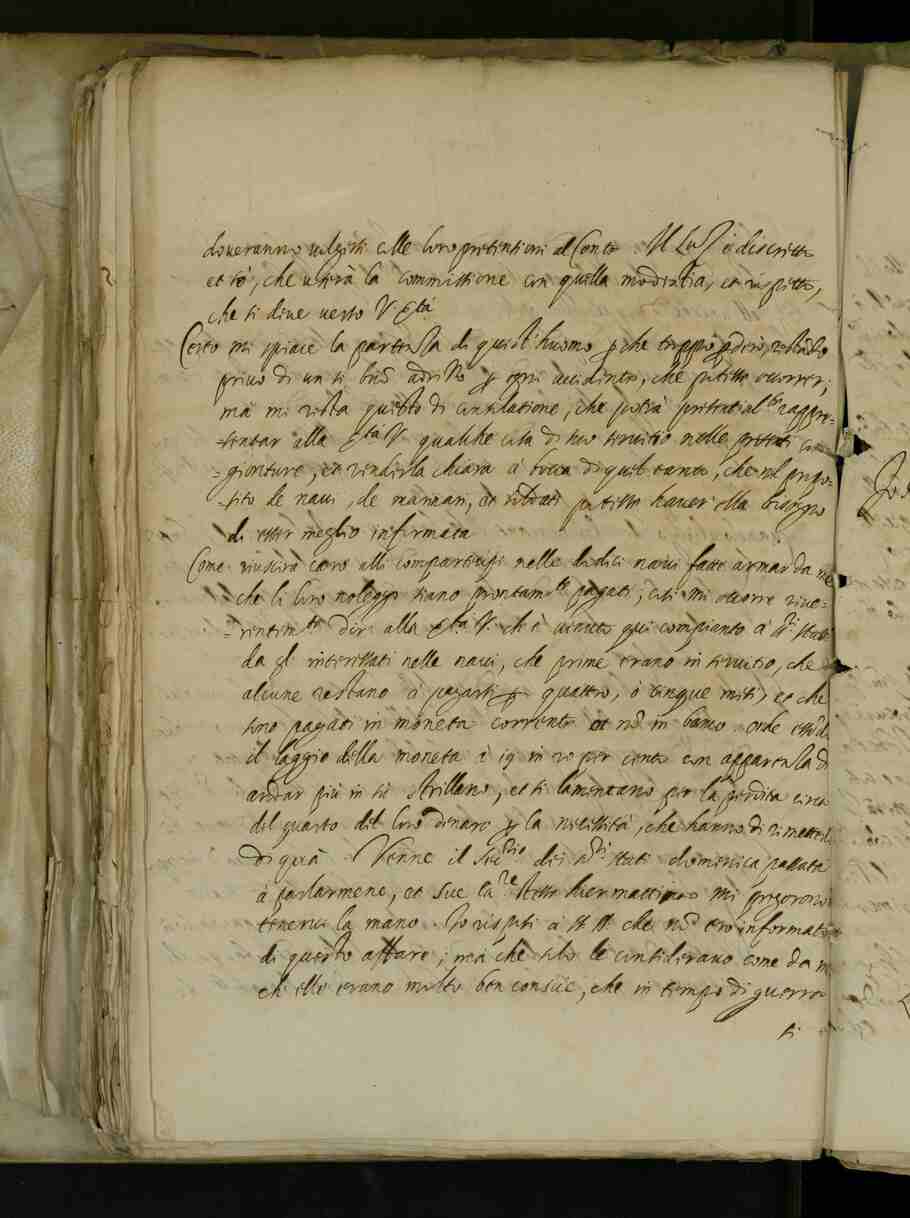 doveranno colle loro pretentioni al Conte. Il è discretto
et sò, che userà la commissione con quella modestia, et rispetto,
che si deve verso V. Ser.tà
Certo mi spiace la partenza di quest'huomo p che troppo restando
privo di un si buo p ogni accidente, che potesse occorrer;
mà mi resta questo di consolatione, che potrà rappre-
-sentar alla Ser.tà V. qualche cosa di suo servitio nelle presenti con-
-gionture, et renderla chiara à bocca di quel tanto, che nel propo-
-sito de navi, de marinari, et soldati potesse haver ella bisogno
di esser meglio informata
Come riuscirà caro alli compartecipi nelle dodici navi fatte armar da me
che li loro noleggi siano prontam.te pagati; così mi occorre rive-
-rentem.te dir alla Ser.tà V. ch'è venuto qui compianto à q.ti Stati
da gl'interessati nelle navi, che prime erano in servitio, che
alcune restano à pagarsi p quattro, ò cinque mesi, et che
sono pagati in moneta corrente et nõ in banco onde essẽdo
il laggio della moneta è 19 in 20 per cento con apparenza di
andar più in sù strillano, et si lamentano per la perdita circa
del quarto del loro denaro p la necessità, che hanno di rimetterlo
di quà. Venne il Seg.rio dei Stati domenica passata
à parlarmene, et stesso hier mattina mi pregorono
tenervi la mano. Io risposi à che nõ ero informato
di questo affare; mà che solo le consideravo come da me
ch'elle erano molto ben conscie, che in tempo di guerra
si